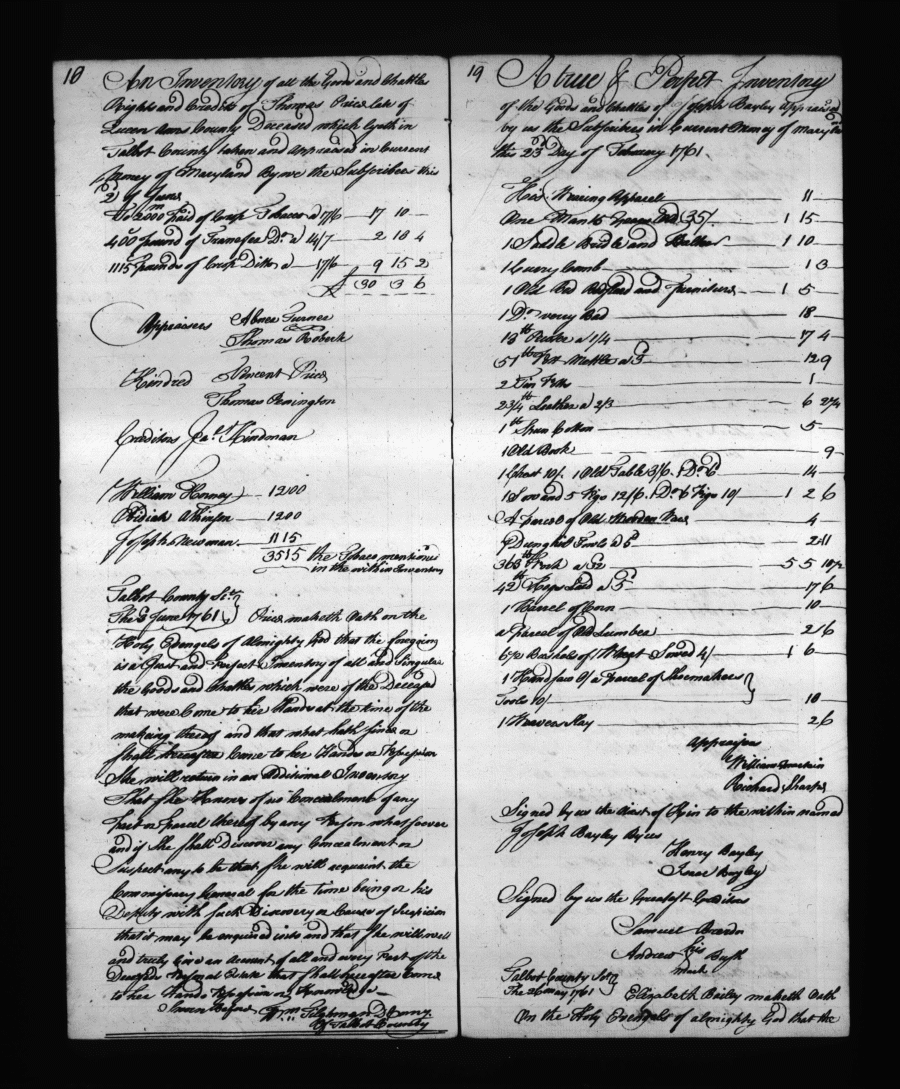 18
An Inventory of all the Goods and Chattles
Rights and Credits of Thomas Price late of
Queen Anns County Deceased which lyeth in
Talbot County taken and Appraised in Current
Money of Maryland By we the Subscribers this
2d of June
To 2000 of Crop Tobacco a 17/6 — 17 10 —
400 pound of Transfer Do a 14/7 — 2 18 4
1115 pounds of Crop Ditto a — 17/6 — 9 15 2
£ 30 3 6
Appraisers Abner Turner
Thomas Roberts
Kindred Vincent Price
Thomas Penington
Creditors Hindman
William Horney — 1200
Obidiah Atkinson — 1200
Joseph Newman — 1115
3515 the Tobacco mentioned
in the within Inventory
Talbot County Sct
The June 1761 Price maketh Oath on the
Holy Evangels of Almighty God that the foregoing
is a Just and Perfect Inventory of all and Singular
the Goods and Chattles which were of the Deceased
that were Come to her Hands at the time of the
making thereof and that what hath since or
shall hereafter Come to her Hands or Possession
She will return in an Additional Inventory
That She Knows of no Concealment of any
Part or Parcel thereof by any Person whatsoever
and if She shall Discover any Concealment or
Suspect any to be that She will acquaint the
Commissary General for the Time being or his
Deputy with Such Discovery or Cause of Suspicion
that it may be enquired into and that She will well
and truly Give an Account of all and every Part of the
Deceased Personal Estate that shall hereafter Come
to her Hands Possession or Knowledge
Sworn Before Wm Tilghman D Comy
of Talbot County
19
A true & Perfect Inventory
of the Goods and Chattles of Joseph Bayley Appraised
by us the Subscribers in Current Money of Maryland
this 23d Day of February 1761.
His Wearing Apparel — 11 —
One Mans (35/) — 1 15
1 Saddle Bridle and — 1 10 —
1 Curry Comb — 1 3
1 Old Bed and Furniture — 1 5 —
1 Do very Bad — 18 —
13 lb Pewter a 1/4 — 17 4
51 lb Pott Mettle a 3d — 12 9
2 — 1 —
2 3/4 lb Leather a 2/3 — 6 2 1/4
1 lb Spun Cotton — 5 —
1 Old Book — 9
1 Chest 10/. 1 Old Table 3/6. 1 Do 6d — 14
1 Sow and 5 Pigs 12/6. 1 Do & 6 Pigs 10/ — 1 2 6
A parcel of Old Wooden Ware — 4
7 Dunghil Fowls a 5d — 2 11
363 lb Pork a — 5 5 10 1/2
42 lb Hogs Lard a 5d — 17 6
1 Barrel of Corn — 10 —
a Parcel of Old Lumber — 2 6
6 1/2 Bushels of Wheat Sowed 4/ — 1 6
1 Handsaw a Parcel of Shoemakers
Tools 10/ — 10
1 Weavers Slay — 2 6
Appraisers
William
Richard Sharp
Signed by us the Next of Kin to the within named
Joseph Bayley By us
Henry Bayley
Isaac Bayley
Signed by us the Greatest Creditors
Samuel
Andrew his Bush
mark
Talbot County Sct
The 26 May 1761 Elizabeth Bailey maketh Oath
On the Holy Evangels of almighty God that the